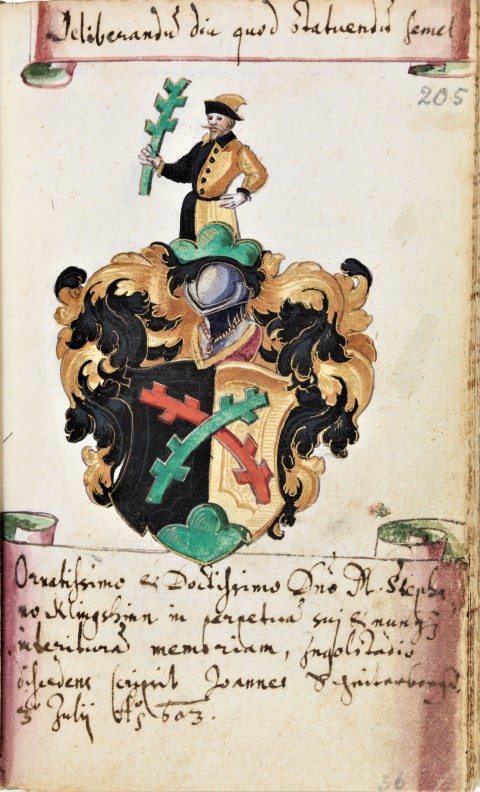 Deliberandū diu quod statuendū semel
205
Ornatissimo et Doctissimo Dnō M. Stepha
no Klingshirn in perpetuā sui et nunqȝ
interiturā memoriam, Ingolstadio
discedens scripsit Joannes
3 Julij Aº 603.
36